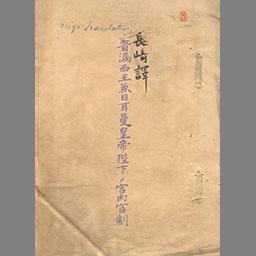 orig. translation
長崎譯
普漏西王兼日耳曼皇帝陛下ノ宮内官制